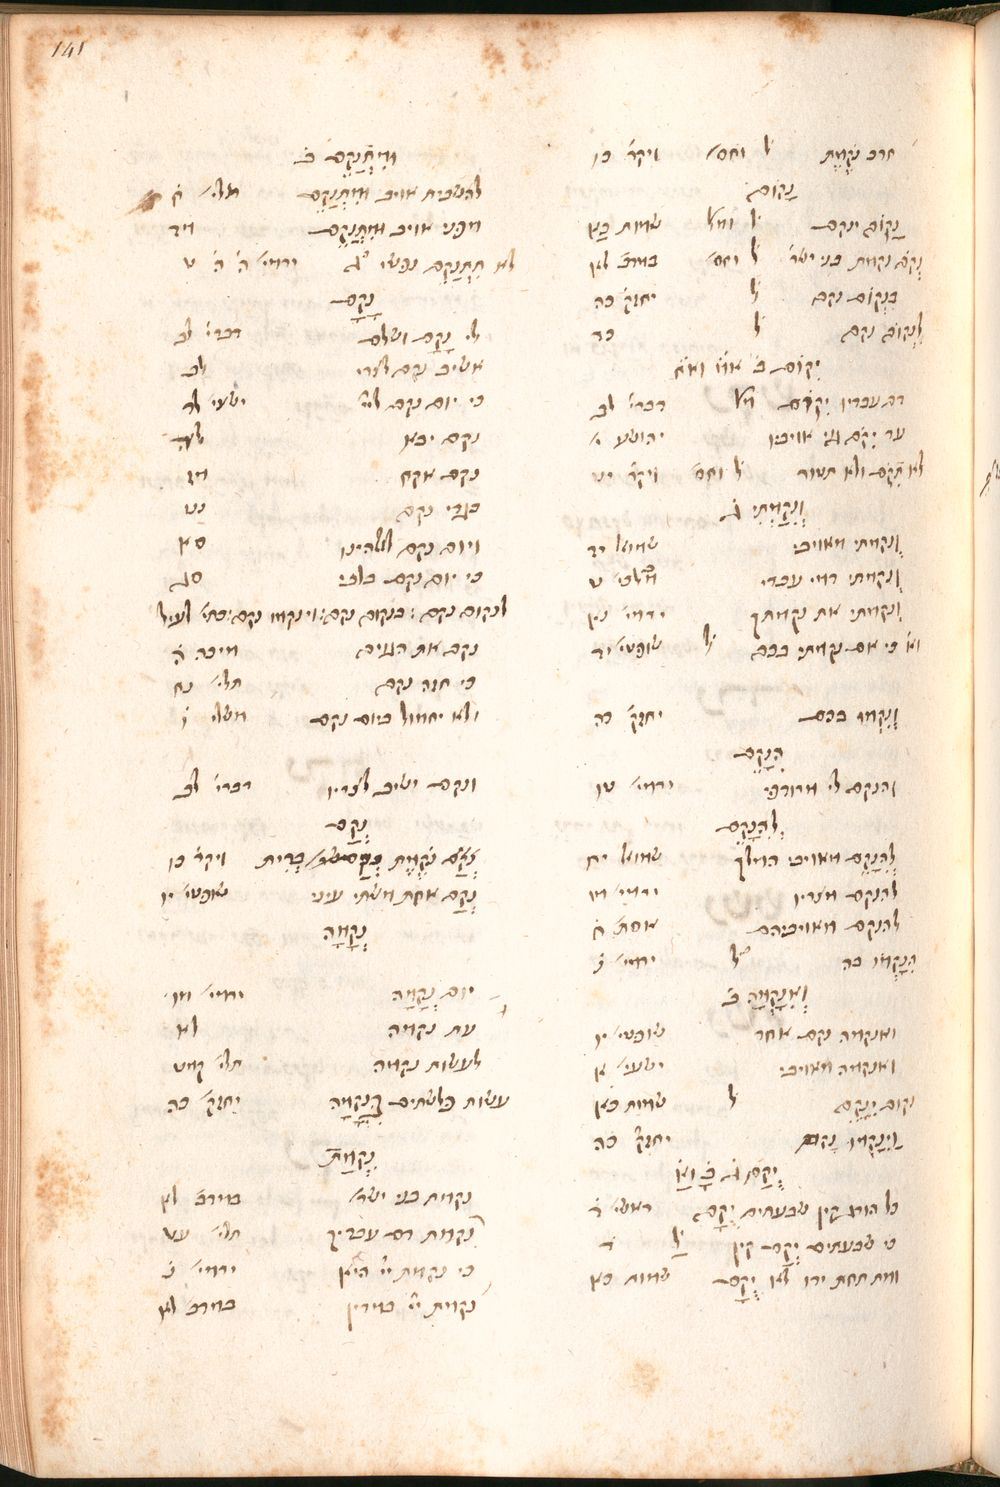 141
חרב נֹקֶמֶת ל׳ וחס׳ ויקר׳ כו
נָקוֹם
נָקוֹם ינקם ל׳ ומל׳ שמות כא
נְקֹם נקמת בני ישר׳ ל׳ וחס׳ במדב׳ לא
בנקום נקם ל׳ יחזק׳ כה
לנקום נקם ל׳ כד
יקום ב׳
דם עבדיו יִקּוֹם מל׳ דברי׳ לב
עד יִקֹּם גוי אויביו יהושע י׳
לא תִקֹּם ולא תטור ל׳ וחס׳ ויקר׳ יט
וְנִקַּמְתִּי ג׳
ונקמתי מאויבי שמואל יד
ונקמתי דמי עבדי מלכי׳ ט
ונקמתי את נקמתך ירמי׳ נא
כי אם נקמתי בכם ל׳ שופטי׳ יד
וְנִקְּמוּ בכם יחזק׳ כה
הִנָּקֵם
והנקם לי מרודפי ירמי׳ טו
לְהִנָּקֵם
להנקם מאויבי המלך שמואל יח
להנקם מצריו ירמי׳ מו
להנקם מאויביהם אסת׳ ח
הִנָּקְמוּ בה ל׳ ירמי׳ נ
וְאִנָּקְמָה ב׳
ואנקמה נקם אחד שופטי׳ יו
ואנקמה מאויבי ישעי׳ א
נקום יִנָּקֵם ל׳ שמות כא
וַיִּנָּקְמוּ נקם יחזק׳ כה
יֻקַּם ג׳
כל הורג קין שבעתים יֻקָּם ראשי׳ ד
כי שבעתים יֻקַּם קין ל׳ ד
ומת תחת ידו לא יֻקַּם שמות כא
וּמִתְנַקֵּם ב׳
להשבית אויב ומתנקם תלי׳ ח
מפני אויב ומתנקם מד
לא תִתְנַקֵּם נפשי ג׳ ירמי׳ ה׳ ה׳ ט
נָקָם
לי נָקָם ושלם דברי׳ לב
אשיב נקם לצרי לב
כי יום נקם ליי׳ ישעי׳ לד
נקם יבא לה
נקם אקח מז
בגדי נקם נט
ויום נקם לאלהינו סא
כי יום נקם בלבי סג
לנקום נקם: בנקום נקם: וינקמו נקם: כתי׳ לעיל
נקם את הגוים מיכה ה
כי חזה נקם תלי׳ נח
ולא יחמול ביום נקם משלי ו
ונקם ישיב לצריו דברי׳ לב
נְקַם
נְקַם נֹקֶמֶת בְּרִית ויקר׳ כו
נְקַם אחת משתי עיני שופטי׳ יו
נְקָמָה
יום נְקָמָה ירמי׳ מו
עת נקמה לא
לעשות נקמה תלי׳ קמט
עשות פלשתים בִּנְקָמָה יחזק׳ כה
נִקְמַת
נקמת בני ישר׳ במדב׳ לא
נקמת דם עבדיך תלי׳ עט
כי נקמת יי׳ היא ירמי׳ נ
נקמת יי׳ במדין במדב׳ לא